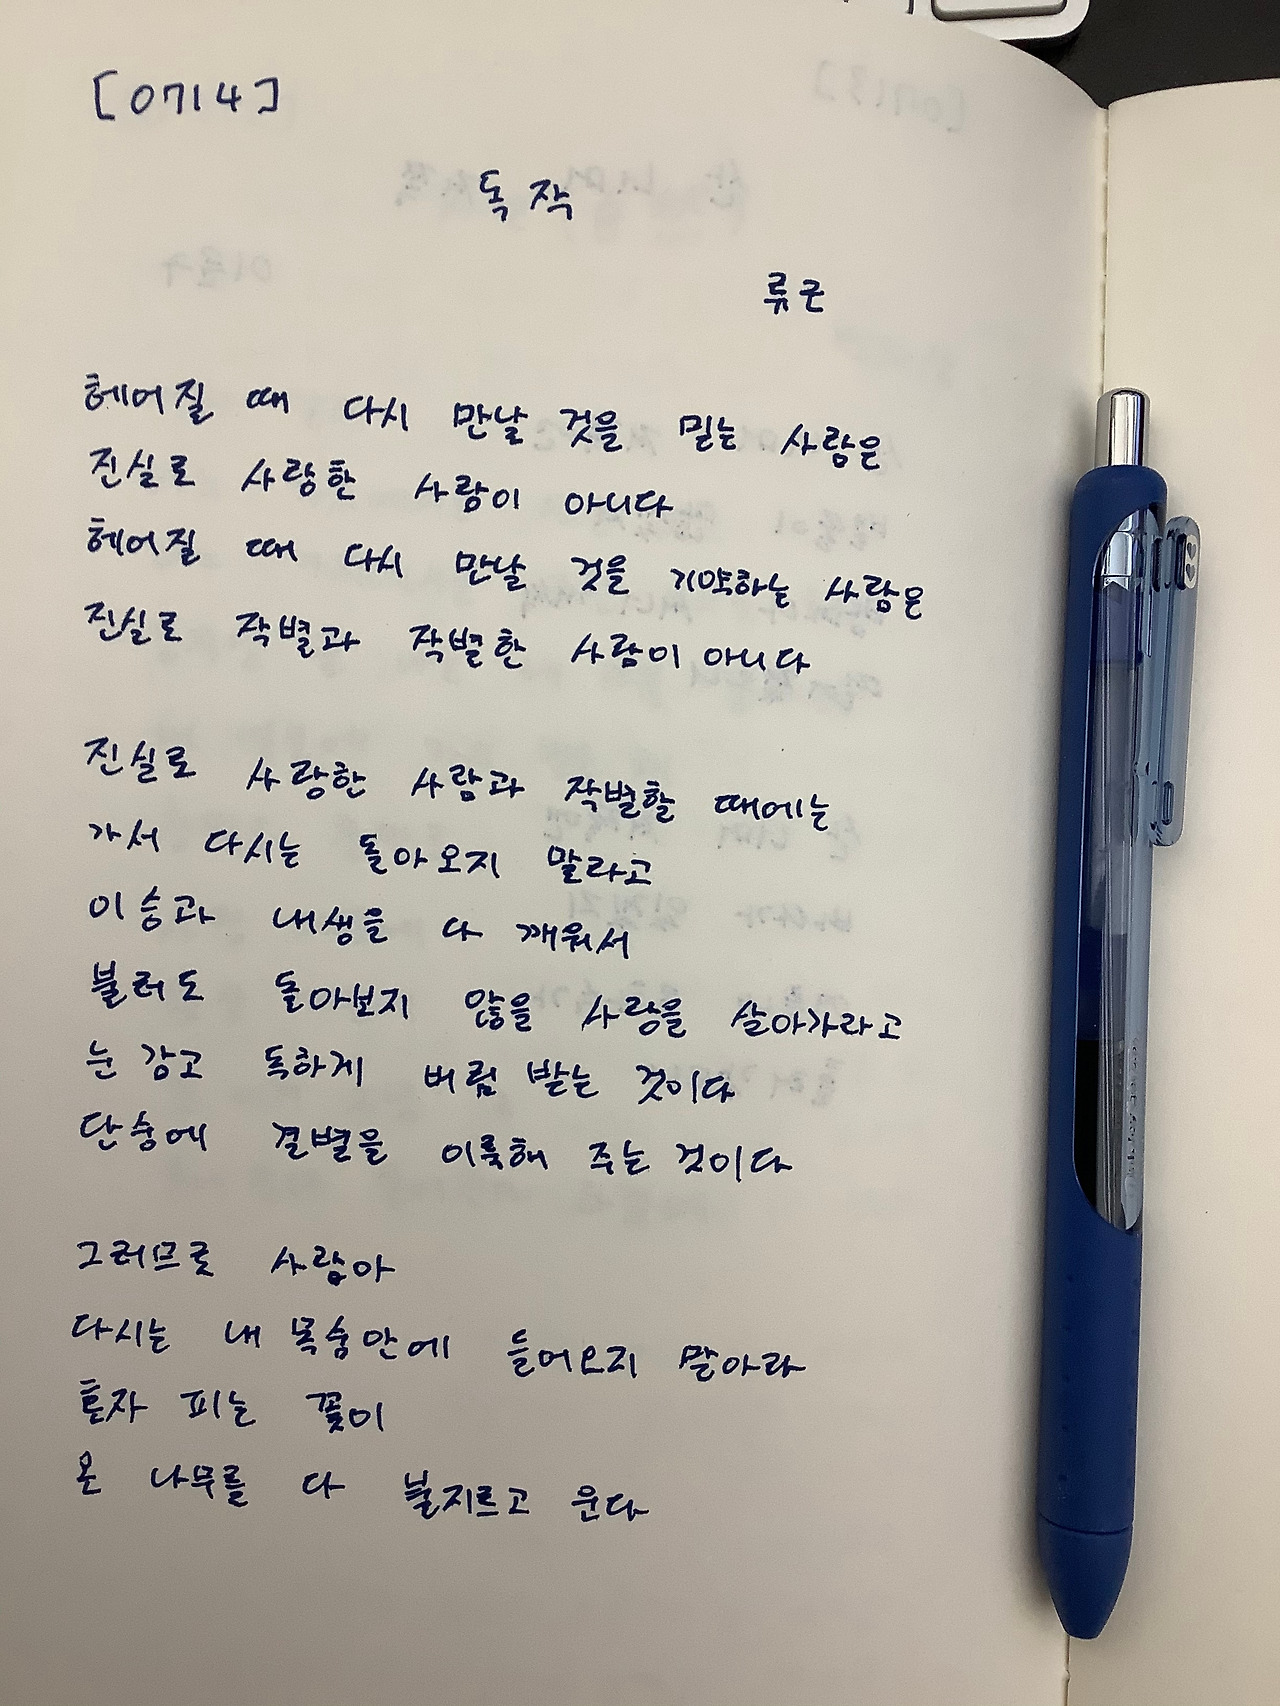 [0714]
독작
류근
헤어질 때 다시 만날 것을 믿는 사람은
진실로 사랑한 사람이 아니다
헤어질 때 다시 만날 것을 기약하는 사람은
진실로 작별과 작별한 사람이 아니다
진실로 사랑한 사람과 작별할 때에는
가서 다시는 돌아오지 말라고
이승과 내생을 다 깨워서
불러도 돌아보지 않을 사랑을 살아가라고
눈 감고 독하게 버림 받는 것이다
단숨에 결별을 이룩해 주는 것이다
그러므로 사람아
다시는 내 목숨안에 들어오지 말아라
혼자 피는 꽃이
온 나무를 다 불지르고 운다